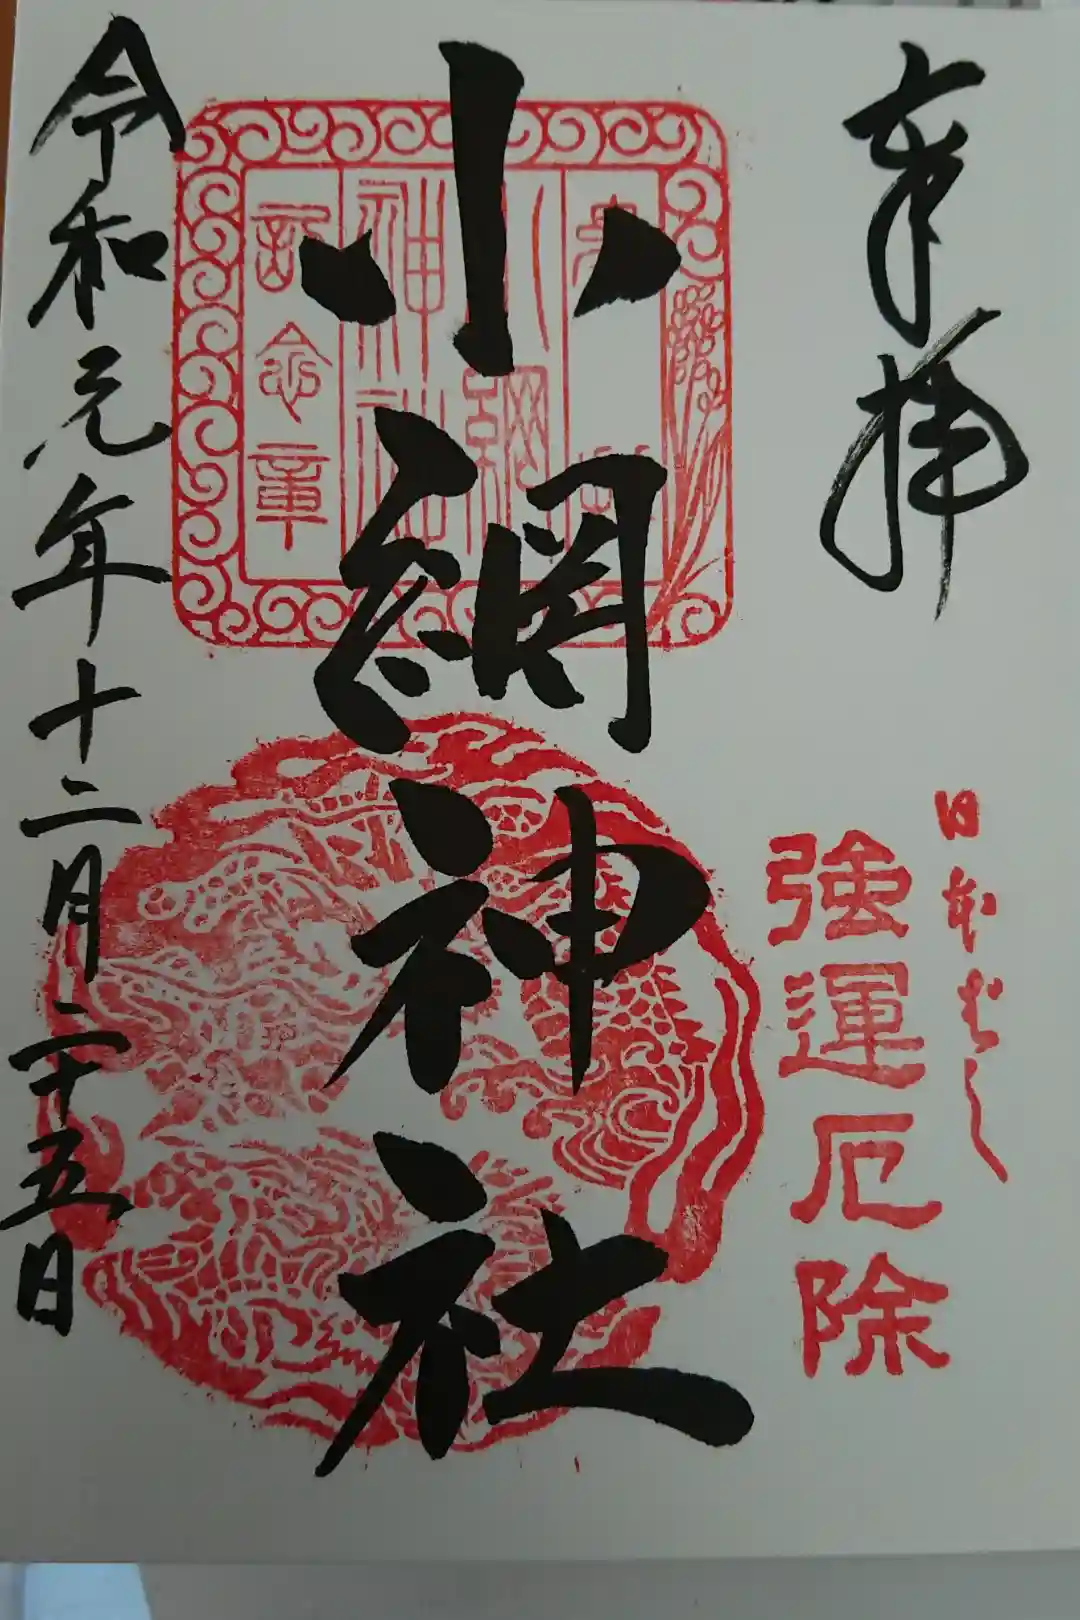 奉拝
日本橋
強運厄除
小網神社
小網
神社
記念章
令和元年十二月二十五日